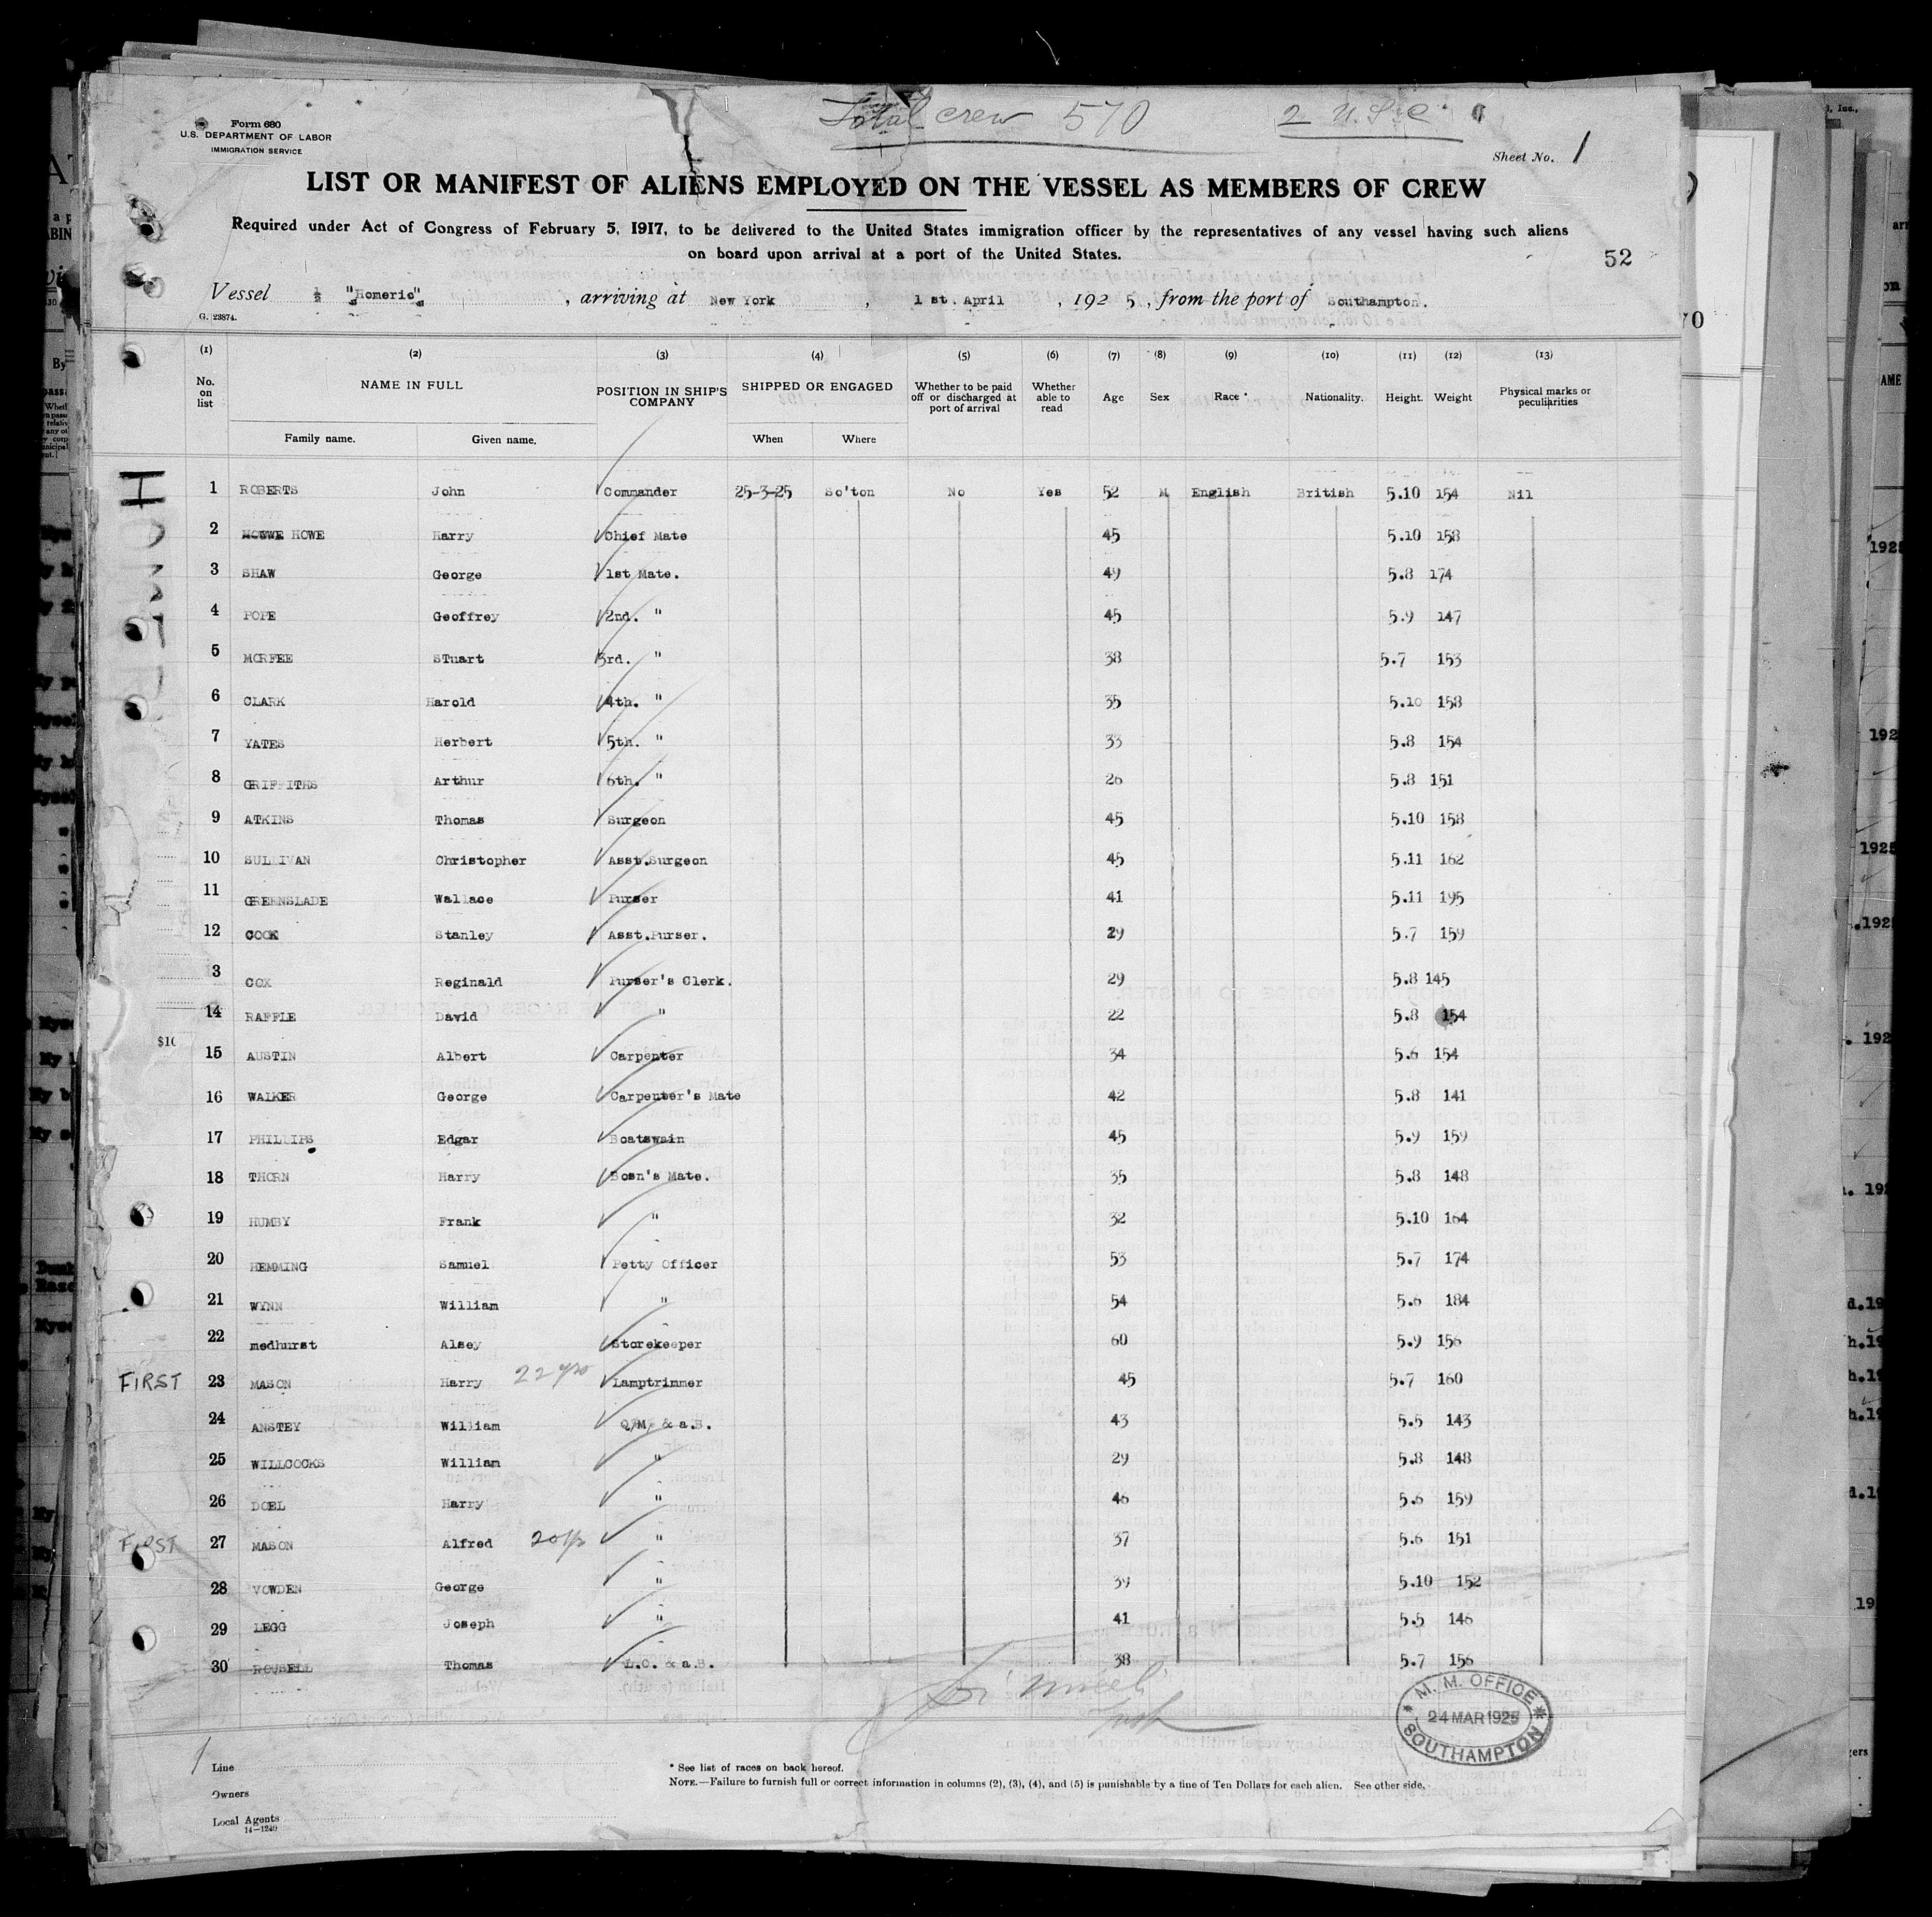 Total crew 570 2 U.S.C.
Form 680
U.S. DEPARTMENT OF LABOR
IMMIGRATION SERVICE
Sheet No. 1
LIST OR MANIFEST OF ALIENS EMPLOYED ON THE VESSEL AS MEMBERS OF CREW
Required under Act of Congress of February 5, 1917, to be delivered to the United States immigration officer by the representatives of any vessel having such aliens
on board upon arrival at a port of the United States.
52
Vessel "Homeric", arriving at New York, 1st. April, 1925, from the port of Southampton.
G. 23874.
(1) (2) (3) (4) (5) (6) (7) (8) (9) (10) (11) (12) (13)
No. on list NAME IN FULL POSITION IN SHIP'S COMPANY SHIPPED OR ENGAGED Whether to be paid off or discharged at port of arrival Whether able to read Age Sex Race* Nationality. Height. Weight Physical marks or peculiarities
Family name. Given name. When Where
1 ROBERTS John Commander 25-3-25 So'ton No Yes 52 M English British 5.10 154 Nil
2 HOWE Harry Chief Mate 45 5.10 158
3 SHAW George 1st Mate. 49 5.8 174
4 POPE Geoffrey 2nd. " 45 5.9 147
5 MCRFEE STuart 3rd. " 38 5.7 153
6 CLARK Harold 4th. " 35 5.10 158
7 YATES Herbert 5th. " 33 5.8 154
8 GRIFFITHS Arthur 6th. " 26 5.8 151
9 ATKINS Thomas Surgeon 45 5.10 158
10 SULLIVAN Christopher Asst.Surgeon 45 5.11 162
11 GREENSLADE Wallace Purser 41 5.11 195
12 COOK Stanley Asst.Purser. 29 5.7 159
3 COX Reginald Purser's Clerk. 29 5.8 145
14 RAFFLE David " 22 5.8 154
$10
15 AUSTIN Albert Carpenter 34 5.6 154
16 WALKER George Carpenter's Mate 42 5.8 141
17 PHILLIPS Edgar Boatswain 45 5.9 159
18 THORN Harry Bosn's Mate. 35 5.8 148
19 HUMBY Frank " 32 5.10 164
20 HEMMING Samuel Petty Officer 53 5.7 174
21 WYNN William " 54 5.6 184
22 medhurst Alsey Storekeeper 60 5.9 156
FIRST 23 MASON Harry 22 yrs Lamptrimmer 45 5.7 160
24 ANSTEY William Q/M/ & a.B. 43 5.5 143
25 WILLCOCKS William " 29 5.8 148
26 DOEL Harry " 46 5.6 159
FIRST 27 MASON Alfred 20 yrs " 37 5.6 151
28 VOWDEN George " 39 5.10 152
29 LEGG Joseph " 41 5.5 146
30 ROUSELL Thomas L.O. & a.B. 38 5.7 156
M. M. OFFICE
24 MAR 1925
SOUTHAMPTON
Line
Owners
Local Agents
14—1240
* See list of races on back hereof.
NOTE.—Failure to furnish full or correct information in columns (2), (3), (4), and (5) is punishable by a fine of Ten Dollars for each alien. See other side.